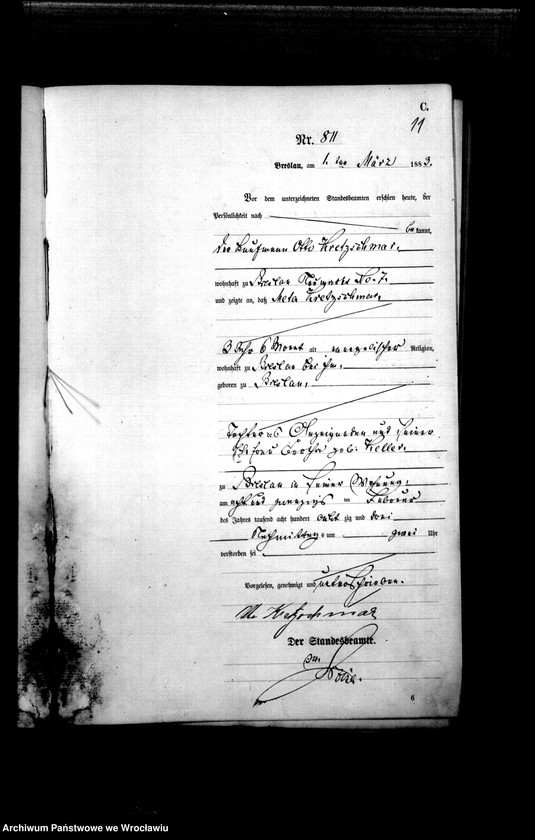 C.
11
Nr. 811
Breslau, am 1. ten März 1883.
Vor dem unterzeichneten Standesbeamten erschien heute, der
Persönlichkeit nach
bekannt,
der Kaufmann Otto Kretzschmar,
wohnhaft zu Breslau No. 7.
und zeigte an, daß Meta Kretzschmar,
3 Jahr 6 Monat alt evangelischer Religion,
wohnhaft zu Breslau bei ihm,
geboren zu Breslau,
Tochter des Anzeigenden und seiner
Ehefrau geb. Keller.
zu Breslau in seiner Wohnung,
am acht und zwanzigsten Februar
des Jahres tausend acht hundert achtzig und drei
Nachmittags um zwei Uhr
verstorben sei
Vorgelesen, genehmigt und unterschrieben.
Kretzschmar
Der Standesbeamte.
6
Archiwum Państwowe we Wrocławiu